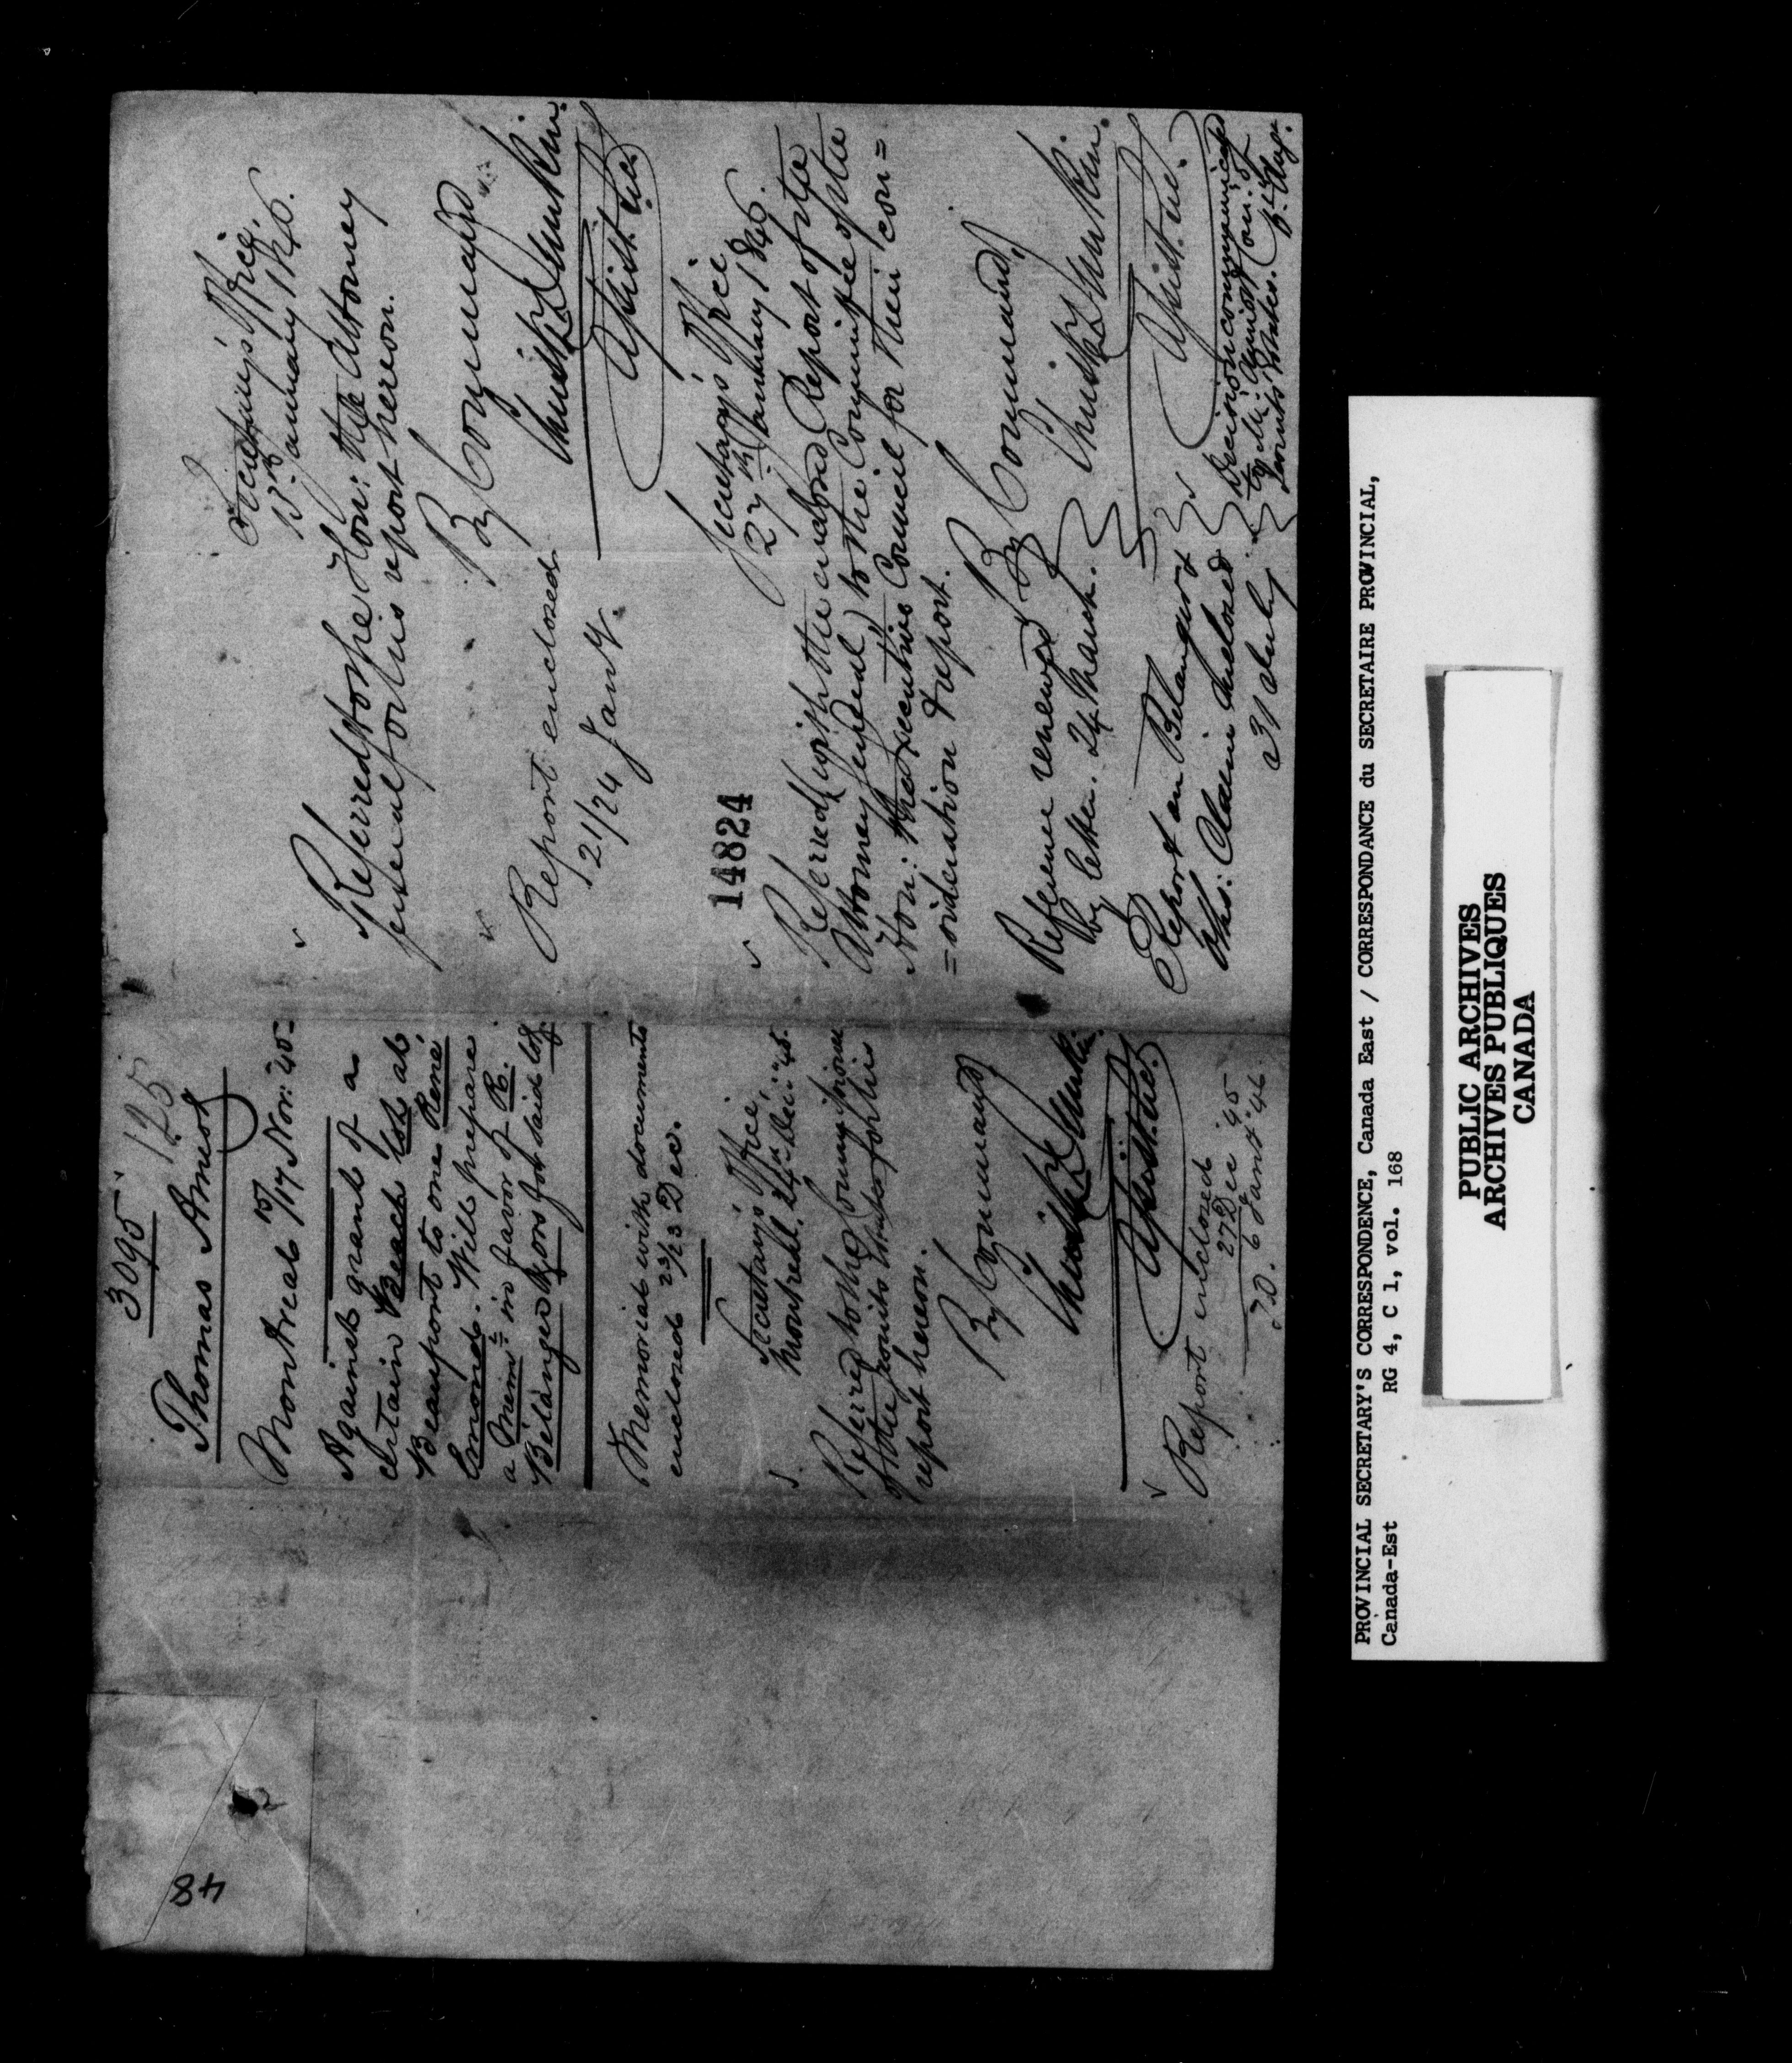 3095
125
Thomas Amiot
Montreal 15/17 Nov: 45
Against grant of a
certain Beach lot at
Beauport to one René
Emond. Will prepare
a Mem: in favor of R.
Bélanger & ors for said lot.
Memorial with documents
enclosed 23/23 Dec.
Secretary's Office,
Montreal, 24th Decr: 45.
Referred to the Commissioner
of the Jesuits Estates for his
report hereon.
By Command
Assist: Sec.
Report enclosed
27 Dec 45
6 Jany 46
Secretary's Office,
January 1846.
Referred to the Hon: the Attorney
General for his report hereon.
By Command
Assist. Sec.
Report enclosed
21/24 Jany.
14824
Secretary's Office
27th January 1846.
Referred (with the endorsed Report of the
Attorney General) to the Committee of the
Hon: the Executive Council for their con=
=sideration & report.
By Command,
Assist. Sec.
Reference renewed
by letter. 24 March.
Report on Belanger &
Ors: Claim Enclosed
31 July
Decision communicated
to Mr. Amiot & Com: of
Jesuits' Estates. Aug.
48
PROVINCIAL SECRETARY'S CORRESPONDENCE, Canada East / CORRESPONDANCE du SECRETAIRE PROVINCIAL,
Canada-Est RG 4, C 1, vol. 168
PUBLIC ARCHIVES
ARCHIVES PUBLIQUES
CANADA